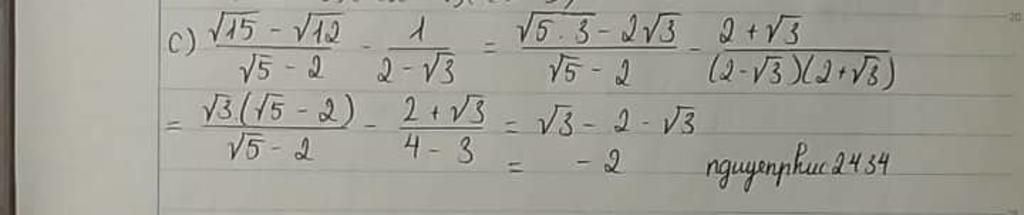 c) (√15 - √12)/(√5 - 2) - 1/(2 - √3) = (√5 . 3 - 2√3)/(√5 - 2) - (2 + √3)/((2 - √3)(2 + √3))
= (√3 (√5 - 2))/(√5 - 2) - (2 + √3)/(4 - 3) = √3 - 2 - √3
= - 2 nguyenphuc2434